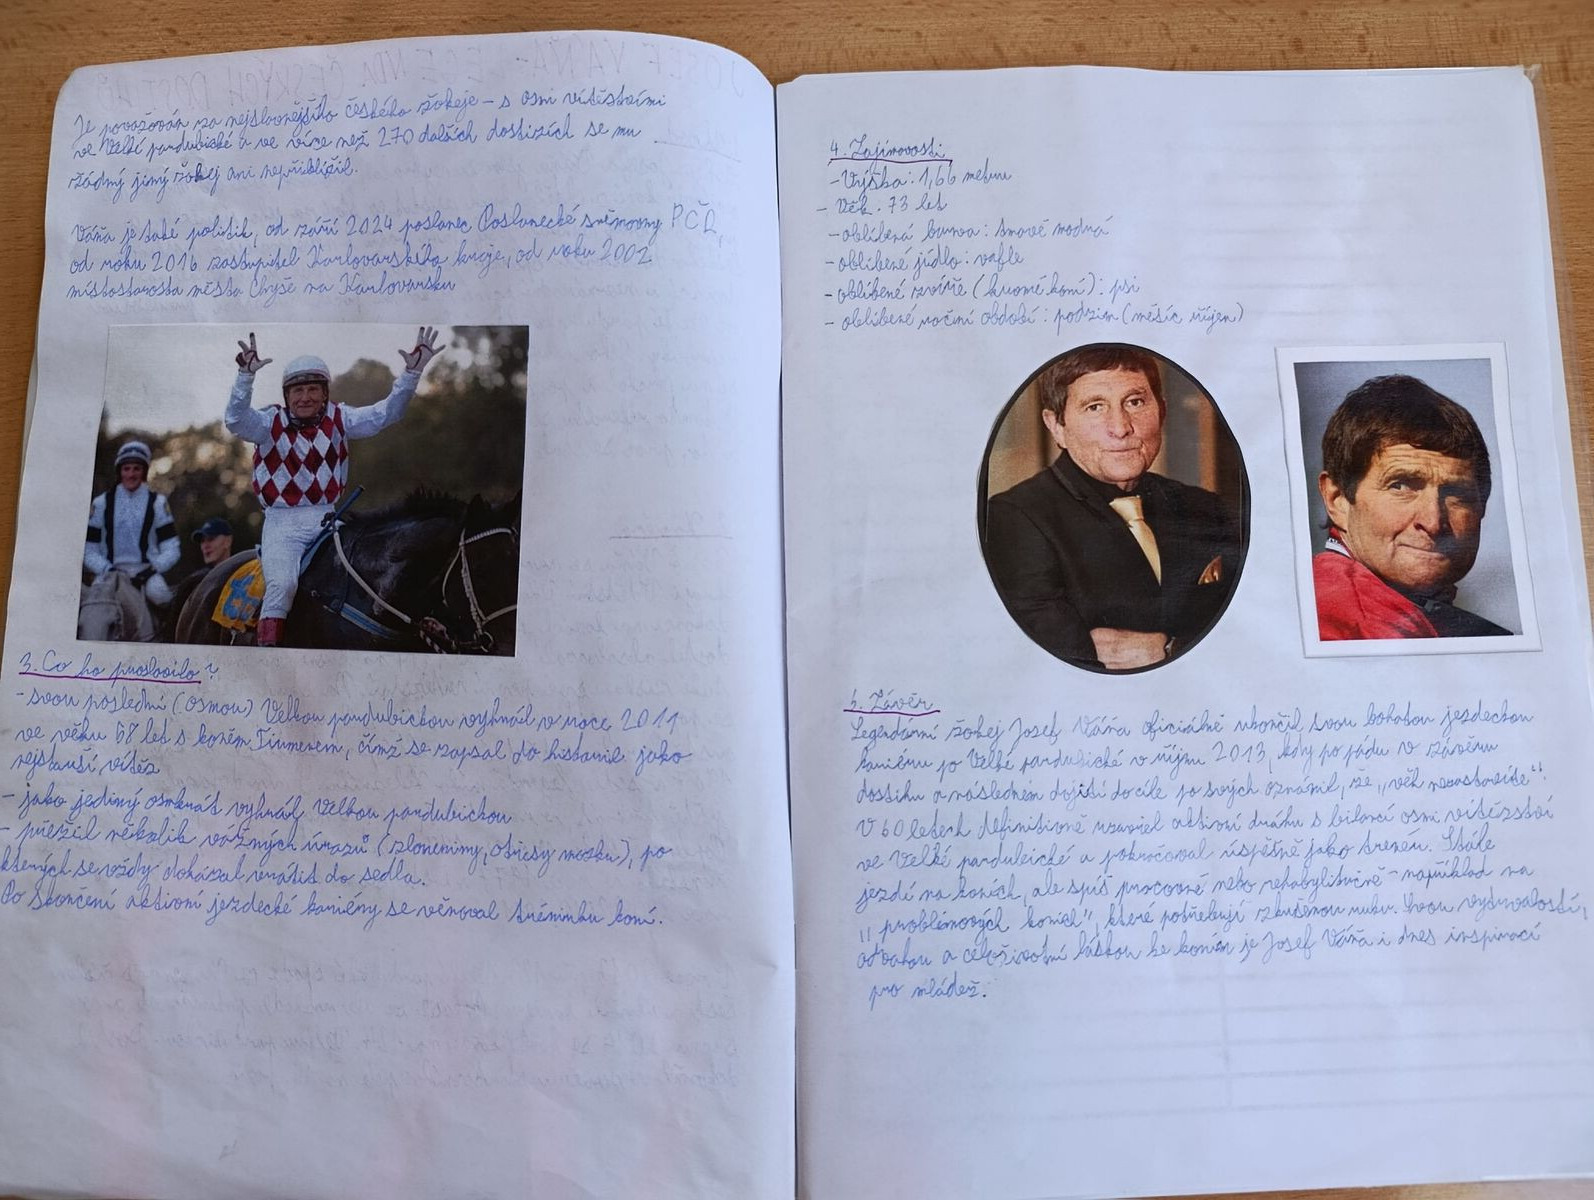 Je považován za nejslavnějšího českého žokeje – s osmi vítězstvími
ve Velké pardubické a ve více než 270 dalších dostizích se mu
žádný jiný žokej ani nepřiblížil.
Váňa je také politik, od září 2024 poslanec Poslanecké sněmovny PČR,
od roku 2016 zastupitel Karlovarského kraje, od roku 2002
místostarosta města Chyše na Karlovarsku
3. Co ho proslavilo?
- svou poslední (osmou) Velkou pardubickou vyhrál v roce 2011
ve věku 58 let s koněm Tiumenem, čímž se zapsal do historie jako
nejstarší vítěz
- jako jediný osmkrát vyhrál Velkou pardubickou
- přežil několik vážných úrazů (zlomeniny, otřesy mozku), po
kterých se vždy dokázal vrátit do sedla.
Po skončení aktivní jezdecké kariéry se věnoval tréninku koní.
4. Zajímavosti
- Výška: 1,66 metru
- Věk: 73 let
- oblíbená barva: tmavě modrá
- oblíbené jídlo: vafle
- oblíbené zvíře (kromě koní): psi
- oblíbené roční období: podzim (měsíc říjen)
5. Závěr
Legendární žokej Josef Váňa oficiálně ukončil svou bohatou jezdeckou
kariéru po Velké pardubické v říjnu 2013, kdy po pádu v závěru
dostihu a následném dojití do cíle po svých oznámil, že „věk nezastavíte“.
V 60 letech definitivně uzavřel aktivní dráhu s bilancí osmi vítězství
ve Velké pardubické a pokračoval úspěšně jako trenér. Stále
jezdí na koních, ale spíš pracovně nebo rehabylitačně - například na
„problémových koních“, které potřebují zkušenou ruku. Svou vytrvalostí,
odvahou a celoživotní láskou ke koním je Josef Váňa i dnes inspirací
pro mládež.